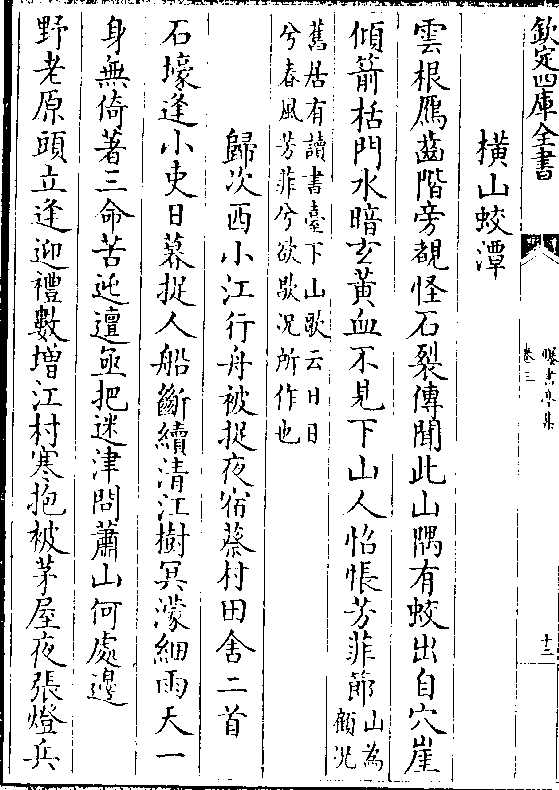 欽定四庫全書
曝書亭集
卷三
十二
橫山蛟潭
雲根鴈齒階旁覩怪石裂傳聞此山隅有蛟出自穴崖
傾箭栝門水暗玄黃血不見下山人怊悵芳菲節山為顧況
舊居有讀書臺下山歌云日日
兮春風芳菲兮欲歇况所作也
歸次西小江行舟被捉夜宿蔡村田舍二首
石壕逢小吏日暮捉人船斷續清江樹冥濛細雨天一
身無倚著三命苦迍邅亟把迷津問蕭山何處邊
野老原頭立逢迎禮數增江村寒抱被茅屋夜張燈兵